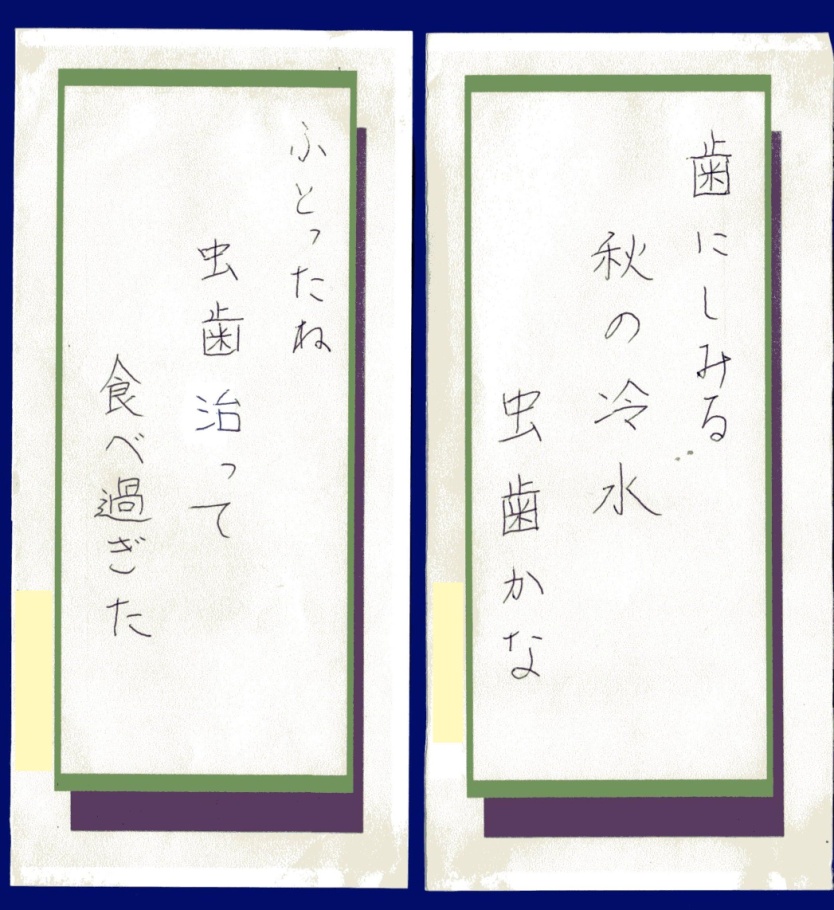 歯にしみる
秋の冷水
虫歯かな
ふとったね
虫歯治って
食べ過ぎた